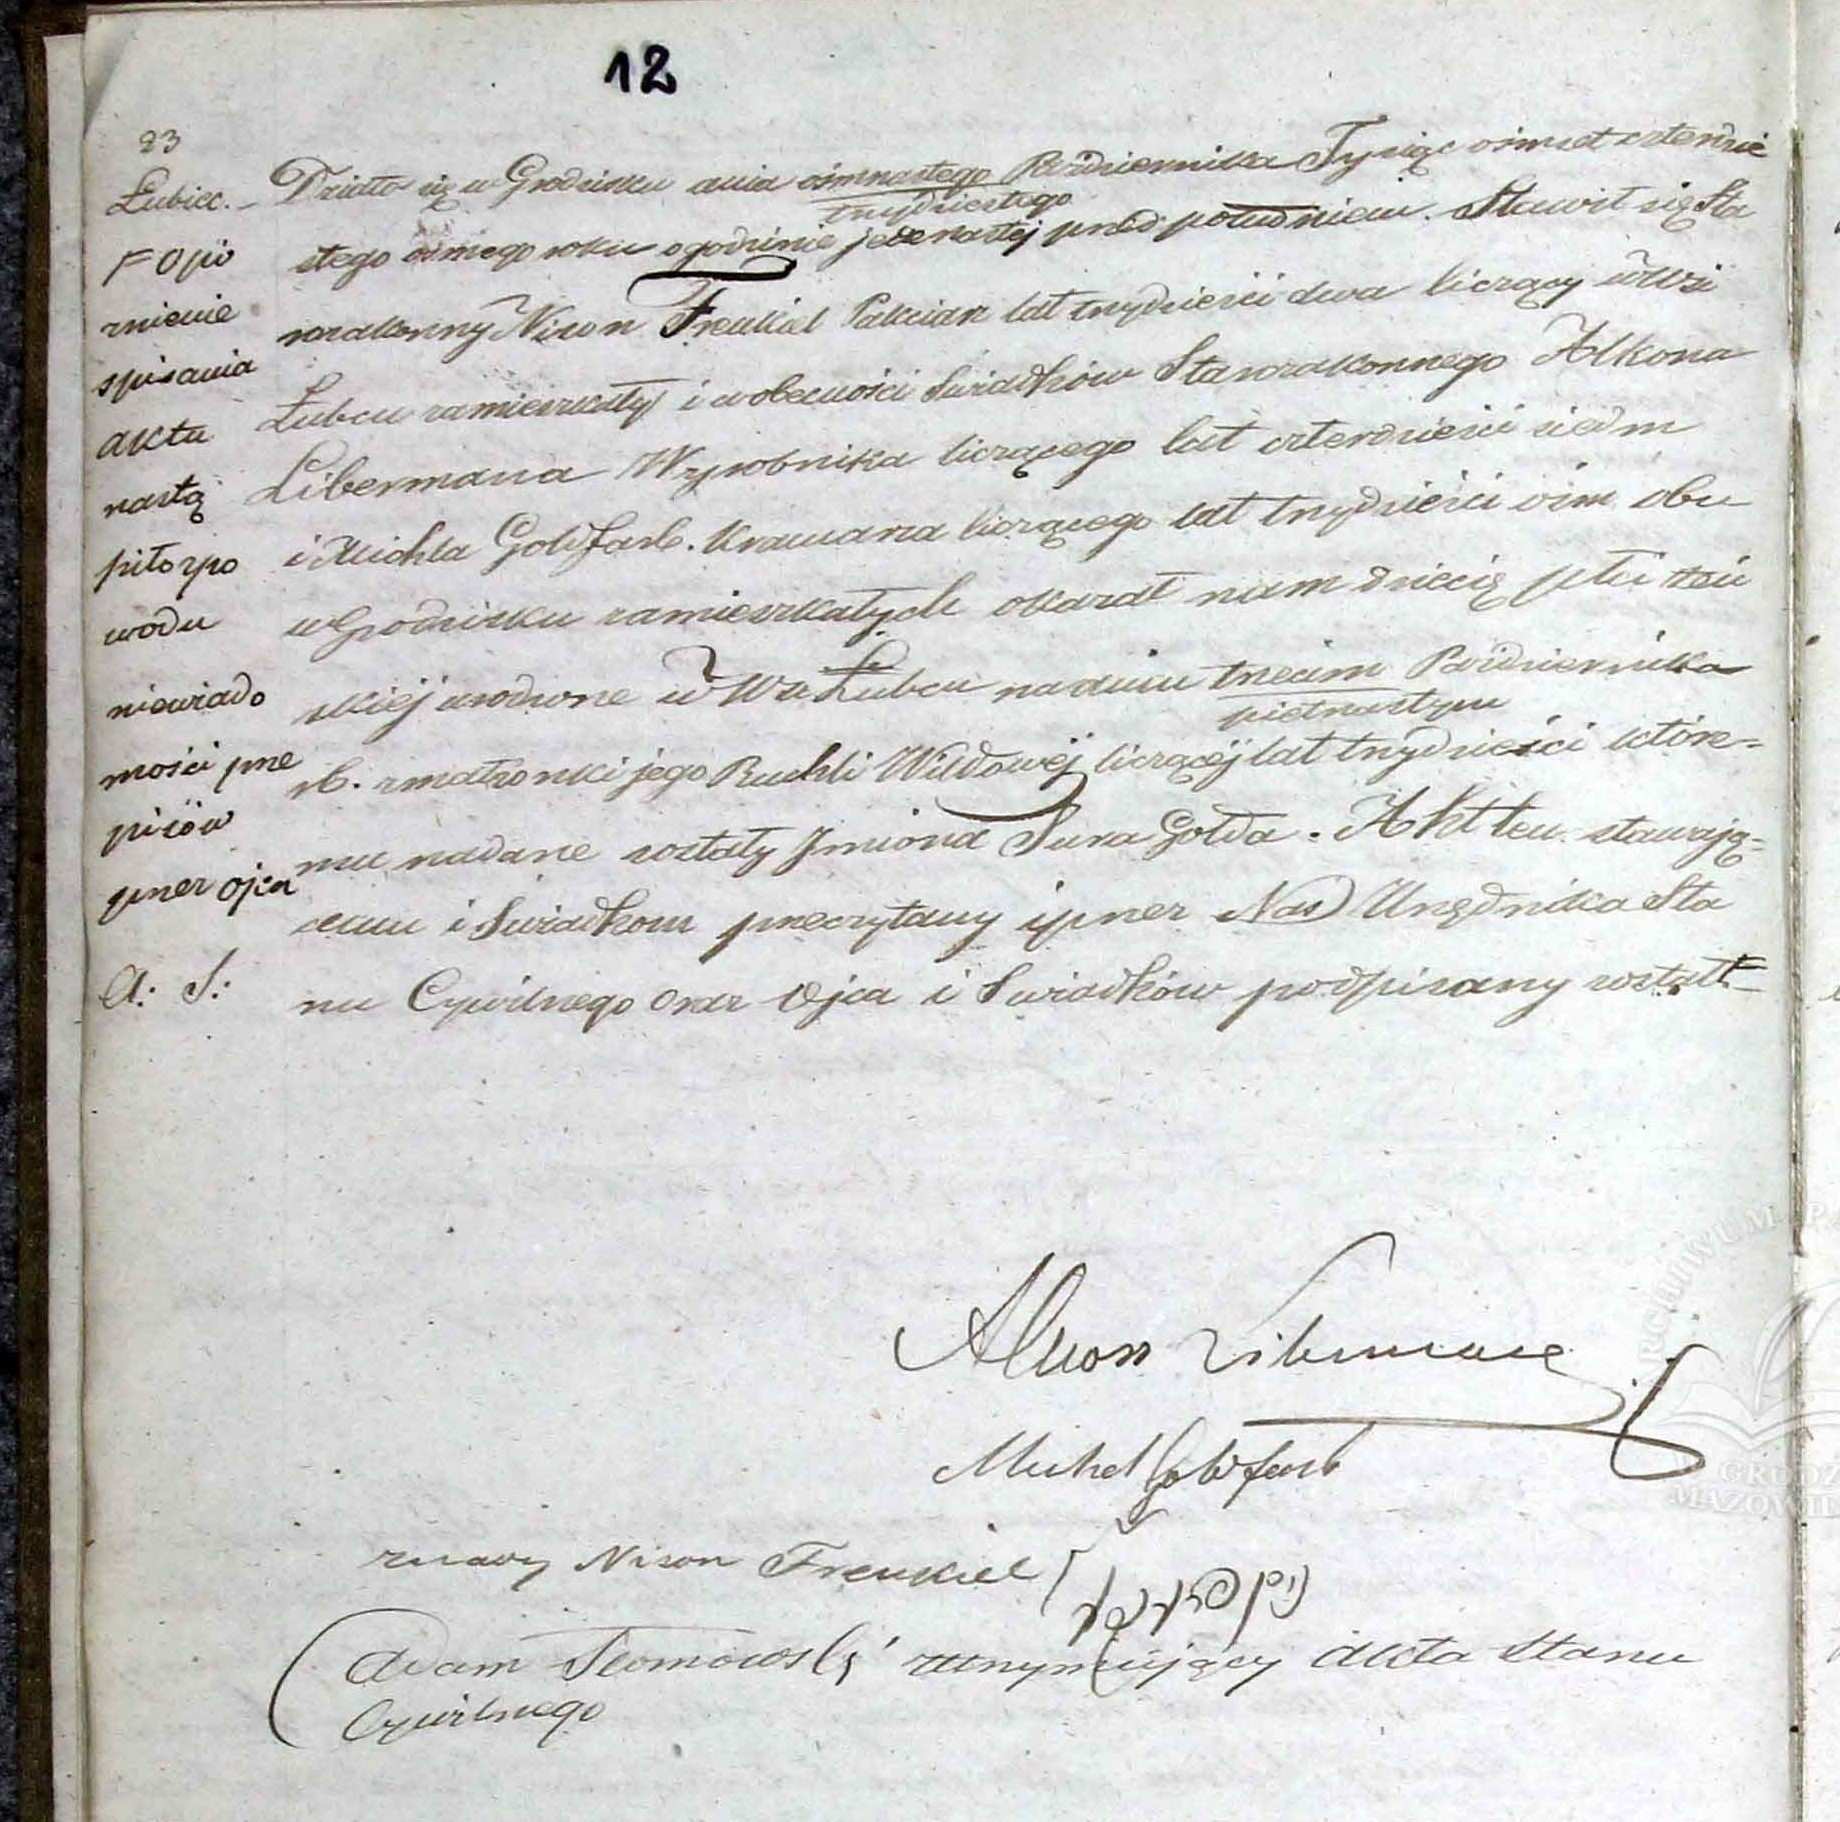 12
23
Łubiec.
F Opó
znienie
spisania
aktu
nastą
piło z po
wodu
niewiado
mości prze
pisów
przez ojca
A: S:
Działo się w Grodzisku dnia ośmnastego Października Tysiąc ośmset czterdzie
trzydziestego
stego ósmego roku o godzinie jedenastej przed południem. Stawił się Sta
rozakonny Nison Frenkiel Pakciarz lat trzydzieści dwa liczący w Wsi
Łubcu zamieszkały i w obecności Swiadków Starozakonnego Alkona
Libermana Wyrobnika liczącego lat czterdzieści siedm
i Michla Goldfarb. Kramarza liczącego lat trzydzieści ośm obu
w Grodzisku zamieszkałych okazał nam dziecię płci żeń
skiej urodzone w Wsi Łubcu na dniu trzecim Października
piętnastym
rb. z małżonki jego Ruchli Wildowéj liczącéj lat trzydzieści które-
mu nadane zostały Jmiona Sura Gołda. Akt ten stawają-
cemu i Swiadkom przeczytany i przez Nas Urzędnika Sta
nu Cywilnego oraz Ojca i Swiadków podpisany został F
Alkon Liberman
Michel Goldfarb
znaczy Nison Frenkiel
Adam utrzymujący Akta Stanu
Cywilnego
ARCHIWUM PA
GRODZ
MAZOWIE